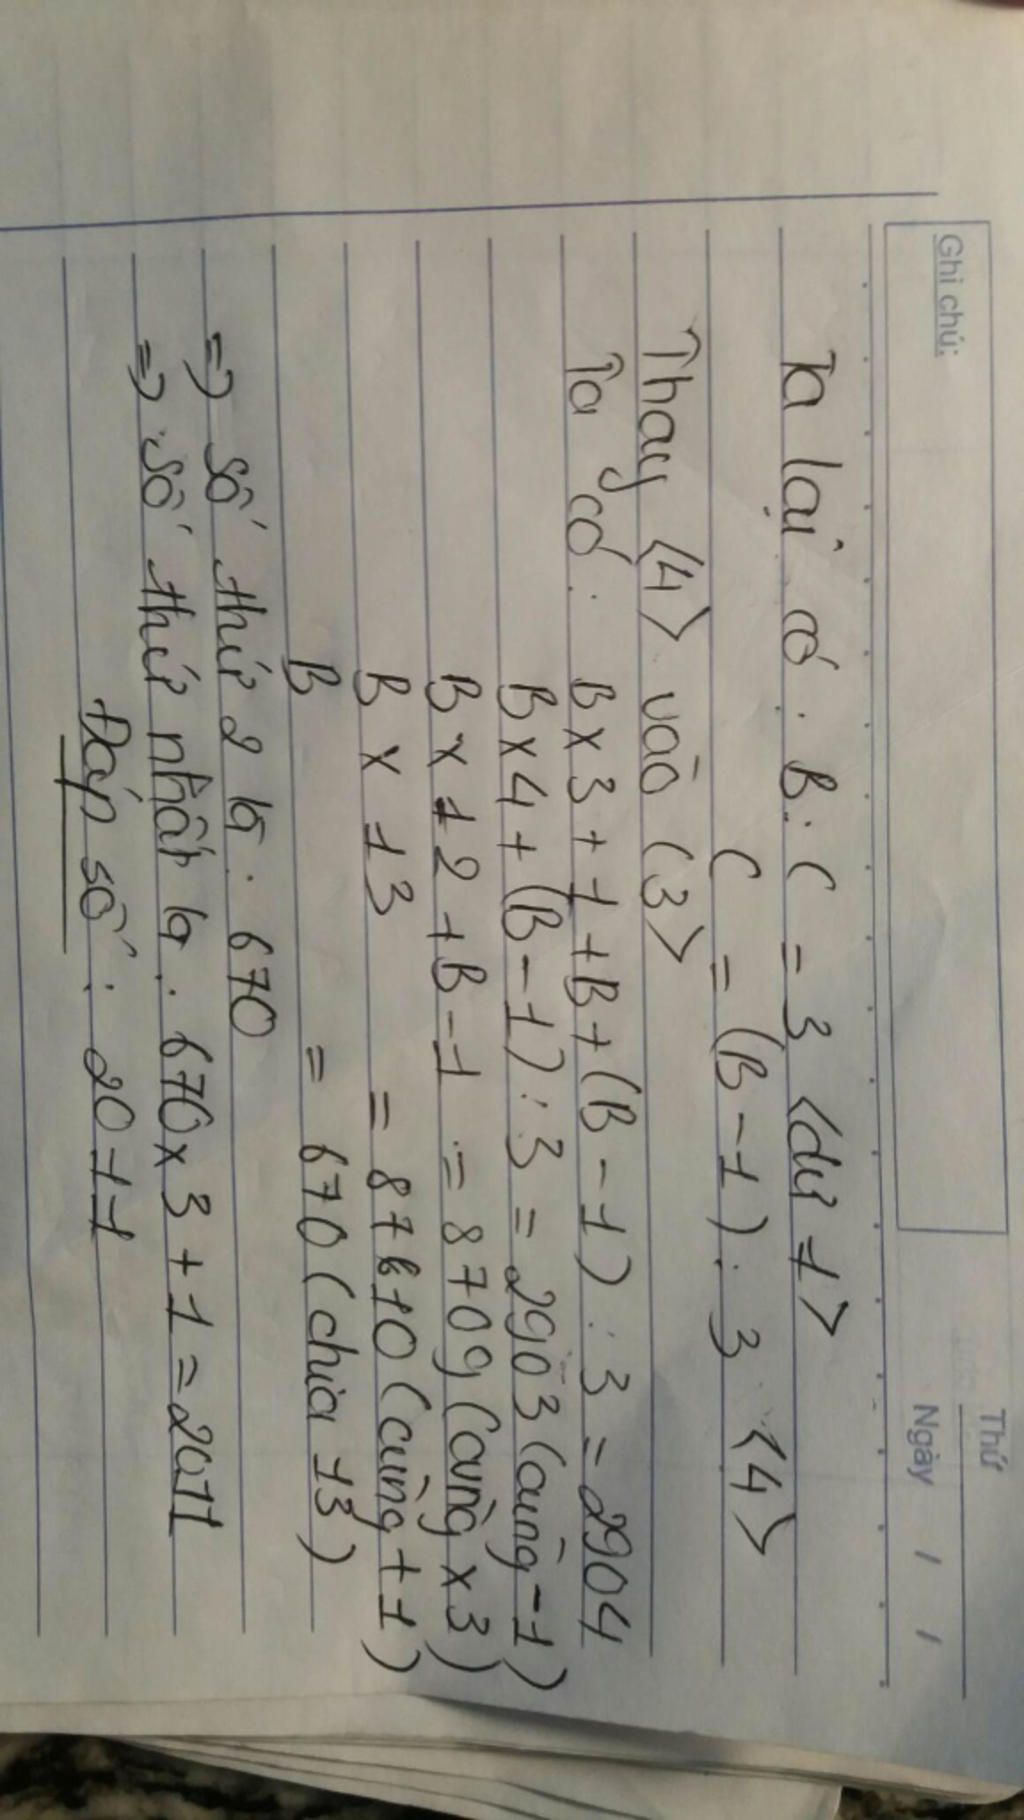 Thứ
Ngày / /
Ghi chú:
Ta lại có : B : C = 3 <dư 1>
C = (B - 1) : 3 <4>
Thay <4> vào (3>
Ta có : B x 3 + 1 + B + (B - 1) : 3 = 2904
B x 4 + (B - 1) : 3 = 2903 (cùng - 1)
B x 12 + B - 1 = 8709 (cùng x 3)
B x 13 = 8710 (cùng + 1)
B = 670 (chia 13)
=> số thứ 2 là : 670
=> số thứ nhất là : 670 x 3 + 1 = 2011
Đáp số : 2011